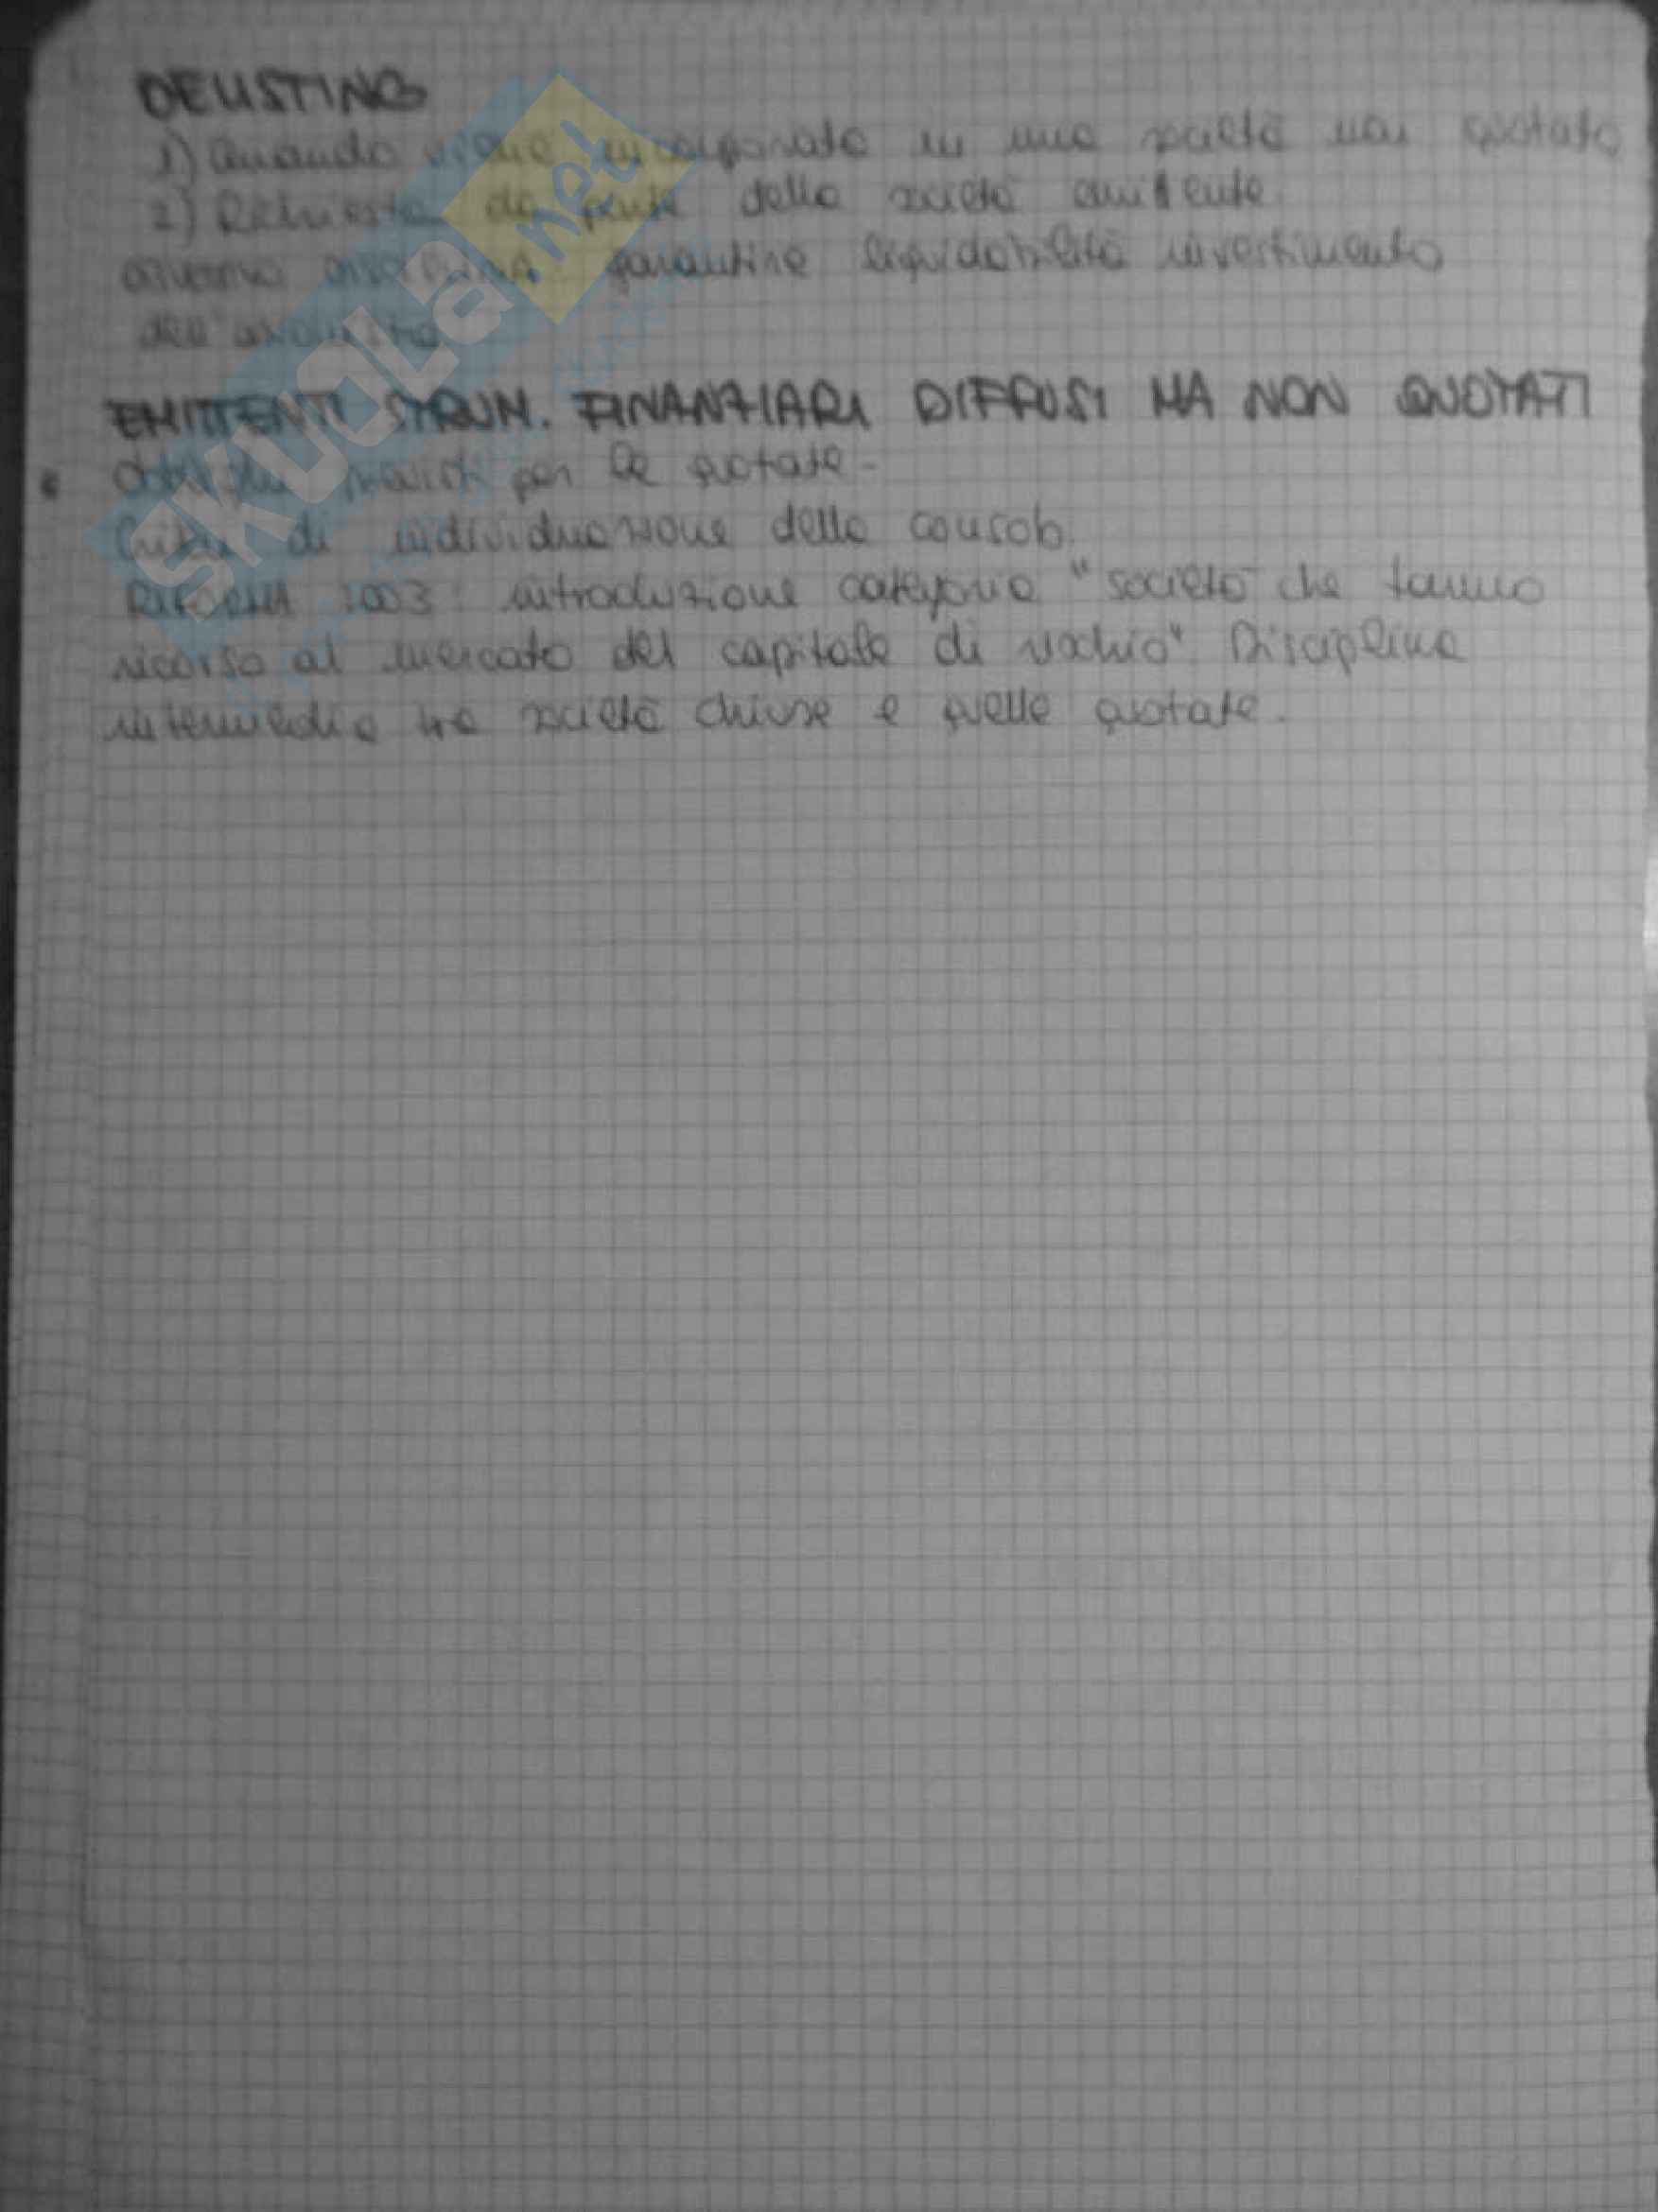 DELISTING
1) Quando viene incorporata in una società non quotata
2) Richiesta da parte della società emittente.
garantire liquidabilità investimento
dell'azionista
EMITTENTI STRUM. FINANZIARI DIFFUSI MA NON QUOTATI
• Obblighi previsti per le quotate -
Criteri di individuazione della consob.
RIFORMA 2003: introduzione categoria "società che fanno
ricorso al mercato del capitale di rischio". Disciplina
intermedia tra società chiuse e quelle quotate.
SKUOLA.net